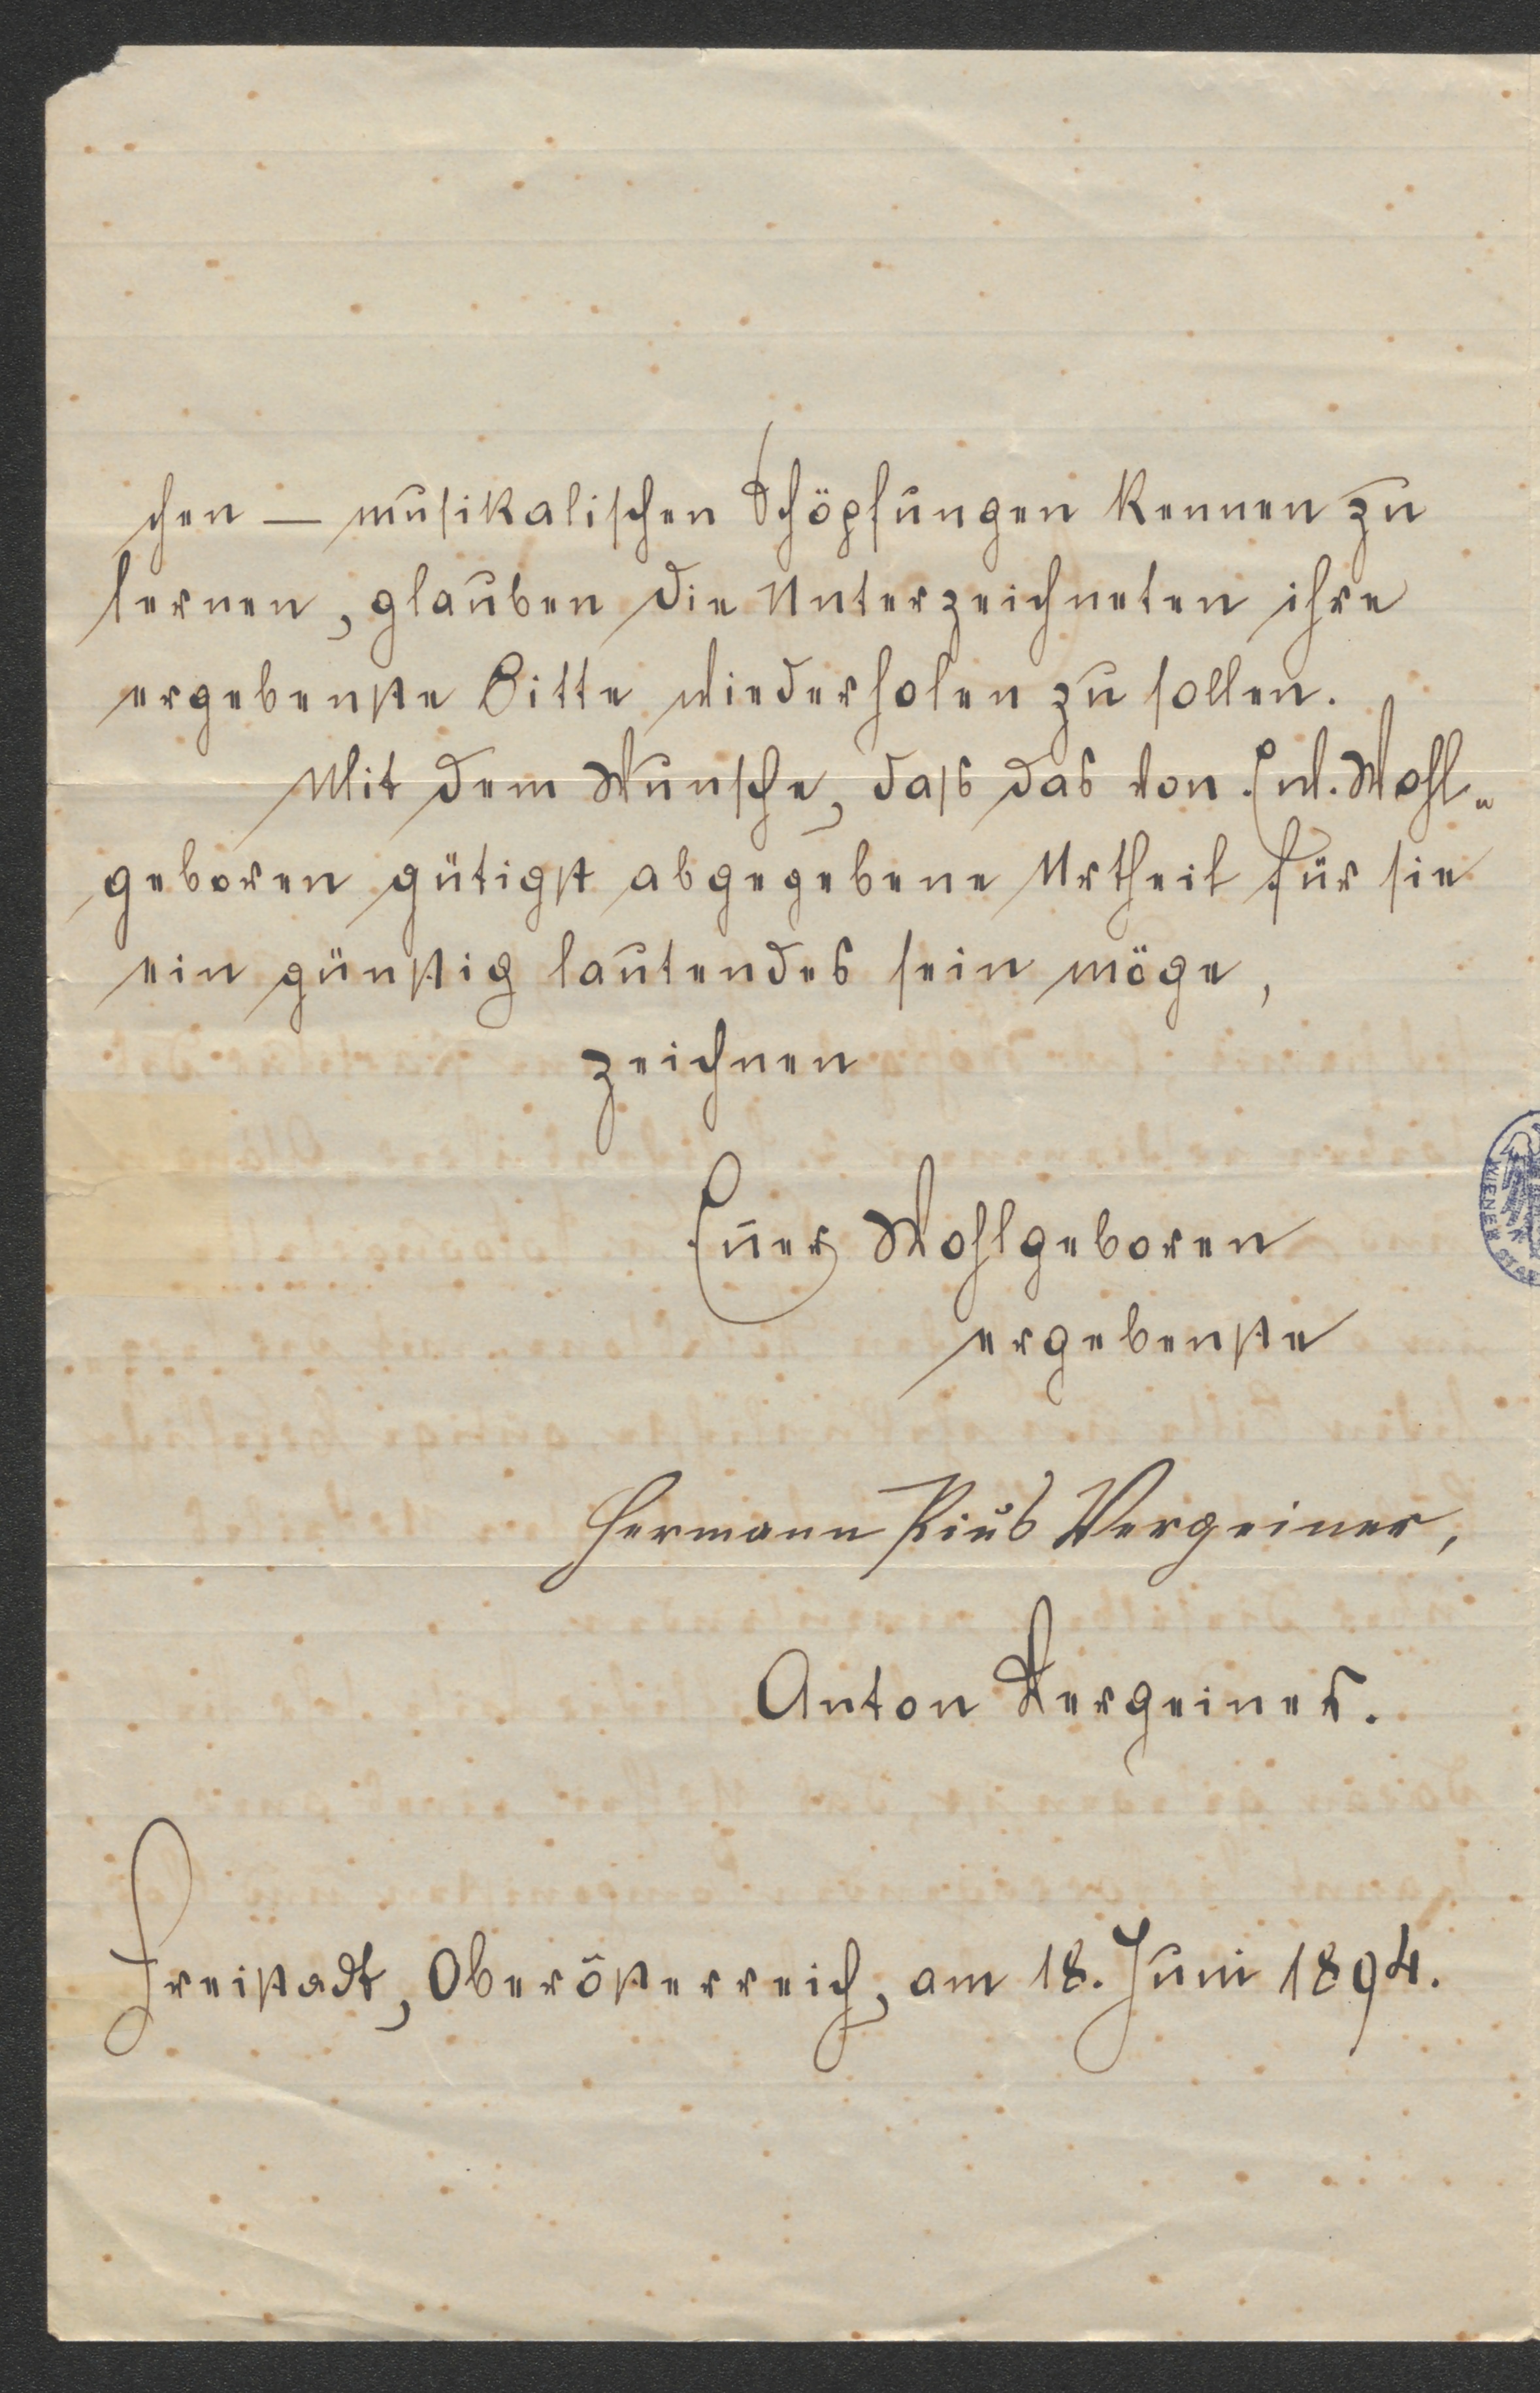 chen — musikalischen Schöpfungen kennen zu
lernen, glauben die Unterzeichneten ihre
ergebenste Bitte wiederholen zu sollen.
Mit dem Wunsche, dass das von Ew. Wohl-
geboren gütigst abgegebene Urtheil für sie
ein günstig lautendes sein möge,
zeichnen
Euer Wohlgeboren
ergebenste
Hermann Pius Vergeiner,
Anton Vergeiner.
Freistadt, Oberösterreich, am 18. Juni 1894.
WIENER